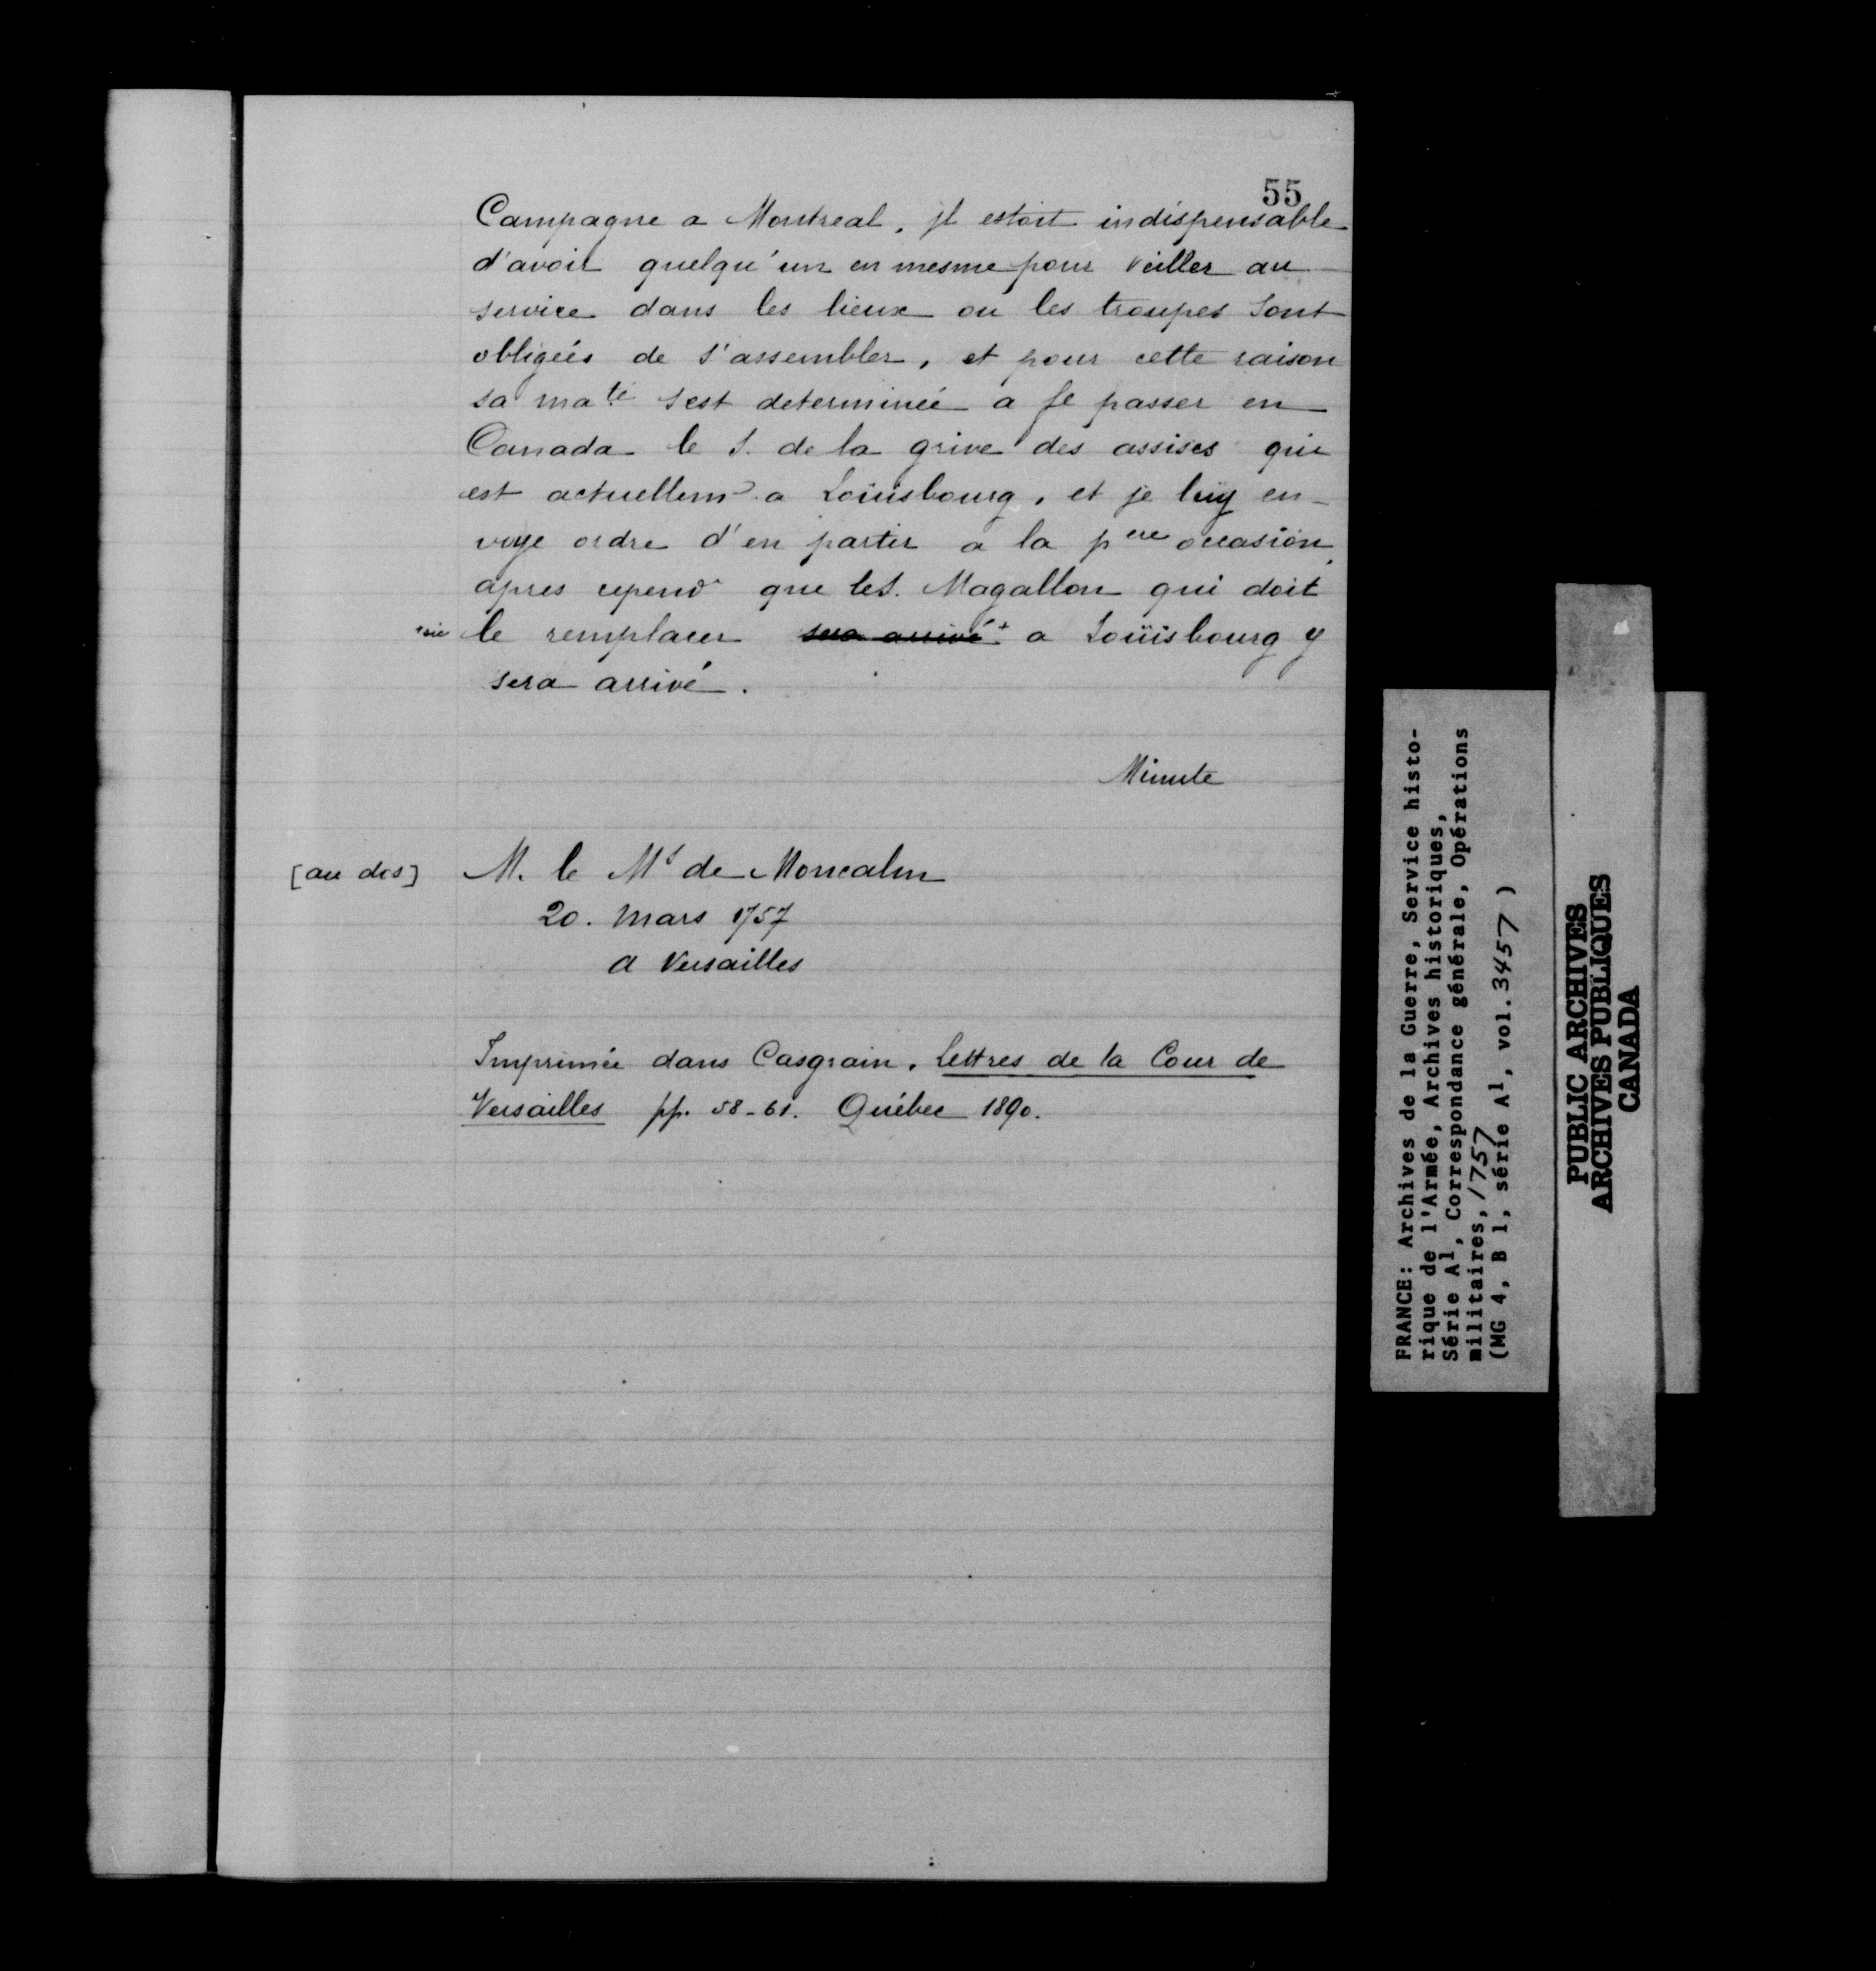 55
Campagne a Montreal, jl estoit indispensable
d'avoir quelqu'un en mesme pour veiller au
service dans les lieux ou les troupes sont
obligeés de s'assembler, et pour cette raison
sa ma.té s'est determineé a fe passer en
Canada le S. de la grive des assises qui
est actuellemt a Loüisbourg, et je luy en-
voye ordre d'en partir a la p ere occasion,
apres cepend que le S. Magallon qui doit
+sic le remplacer sera arrivé + a Loüisbourg y
sera arrivé.
Minute
[au dos] M. le Ms de Moncalm
20. Mars 1757
a Versailles
Imprimée dans Casgrain. Lettres de la Cour de
Versailles pp. 58-61. Québec 1890.
FRANCE: Archives de la Guerre, Service histo-
rique de l'Armée, Archives historiques,
Série A1, Correspondance générale, Opérations
militaires, 1757
(MG 4, B 1, série A1, vol. 3457 )
PUBLIC ARCHIVES
ARCHIVES PUBLIQUES
CANADA